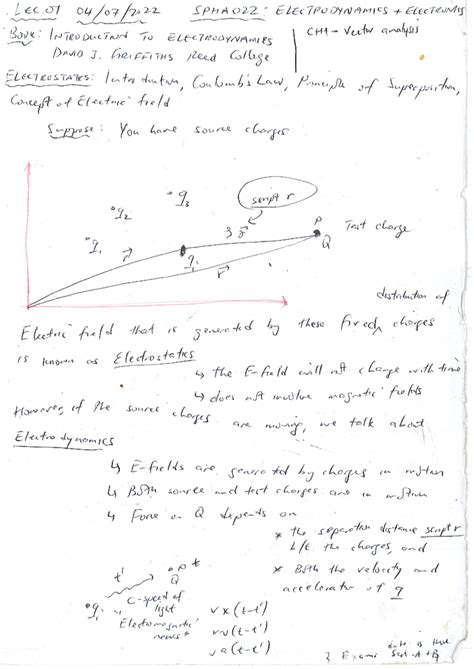 LEC.01 04/07/2022 SPHA022: ELECTRODYNAMICS + ELECTRONICS
BOOK: INTRODUCTION TO ELECTRODYNAMICS
DAVID J. GRIFFITHS Reed College
CH1 - Vector analysis
ELECTROSTATICS: Introduction, Coulomb's Law, Principle of Superposition,
Concept of Electric field
Suppose: You have source charges
q3
script r
q2
P
Test charge
Q
qi
r
q1
r
distribution of
Electric field that is generated by these fixed charges
is known as Electrostatics
↳ the E-field will not change with time
↳ does not involve magnetic fields
However, if the source charges are moving, we talk about
Electrodynamics
↳ E-fields are generated by charges in motion
↳ Both source and test charges are in motion
↳ Force on Q depends on
* the separation distance script r
b/t the charges and
* Both the velocity and
acceleration of q
t'
P t
Q
C-speed of
light
q1
Electromagnetic
✓ x(t-t')
✓ v(t-t')
✓ a(t-t')
Exams